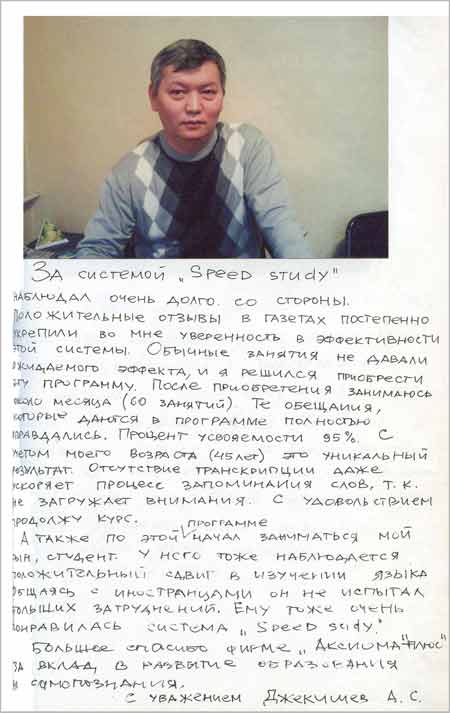 За системой „Speed study"
наблюдал очень долго со стороны.
Положительные отзывы в газетах постепенно
укрепили во мне уверенность в эффективности
этой системы. Обычные занятия не давали
ожидаемого эффекта, и я решился приобрести
эту программу. После приобретения занимаюсь
около месяца (60 занятий). Те обещания,
которые даются в программе полностью
оправдались. Процент усвояемости 95%. С
учетом моего возраста (45 лет) это уникальный
результат. Отсутствие транскрипции даже
ускоряет процесс запоминания слов, т.к.
не загружает внимания. С удовольствием
продолжу курс.
А также по этой программе начал заниматься мой
сын, студент. У него тоже наблюдается
положительный сдвиг в изучении языка
Общаясь с иностранцами он не испытал
больших затруднений. Ему тоже очень
понравилась система „Speed study."
Большее спасибо фирме „Аксиома плюс"
за вклад в развитие образования
и самопознания.
С уважением Джекишев А.С.